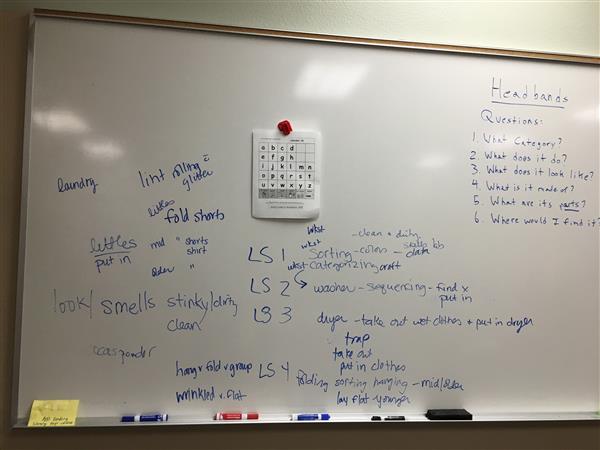 Headbands
Questions:
1. What Category?
2. What does it do?
3. What does it look like?
4. What is it made of?
5. What are its parts?
6. Where would I find it?
a b c d
e f g h
i j k l m n
o p q r s t
u v w x y z
laundry
lint rolling
glitter
littles
fold shorts
littles
put in
mid " shorts
shirt
older "
look/smells stinky/dirty
clean
hang v fold v group
wrinkled v. flat
wkst - clean + dirty
LS 1 Sorting - colors - data
wkst categorizing craft
LS 2 washer - sequencing - find x
put in
LS 3 dryer - take out wet clothes + put in dryer
trap
take out
put in clothes
LS 4 folding sorting hanging - mid/older
lay flat younger